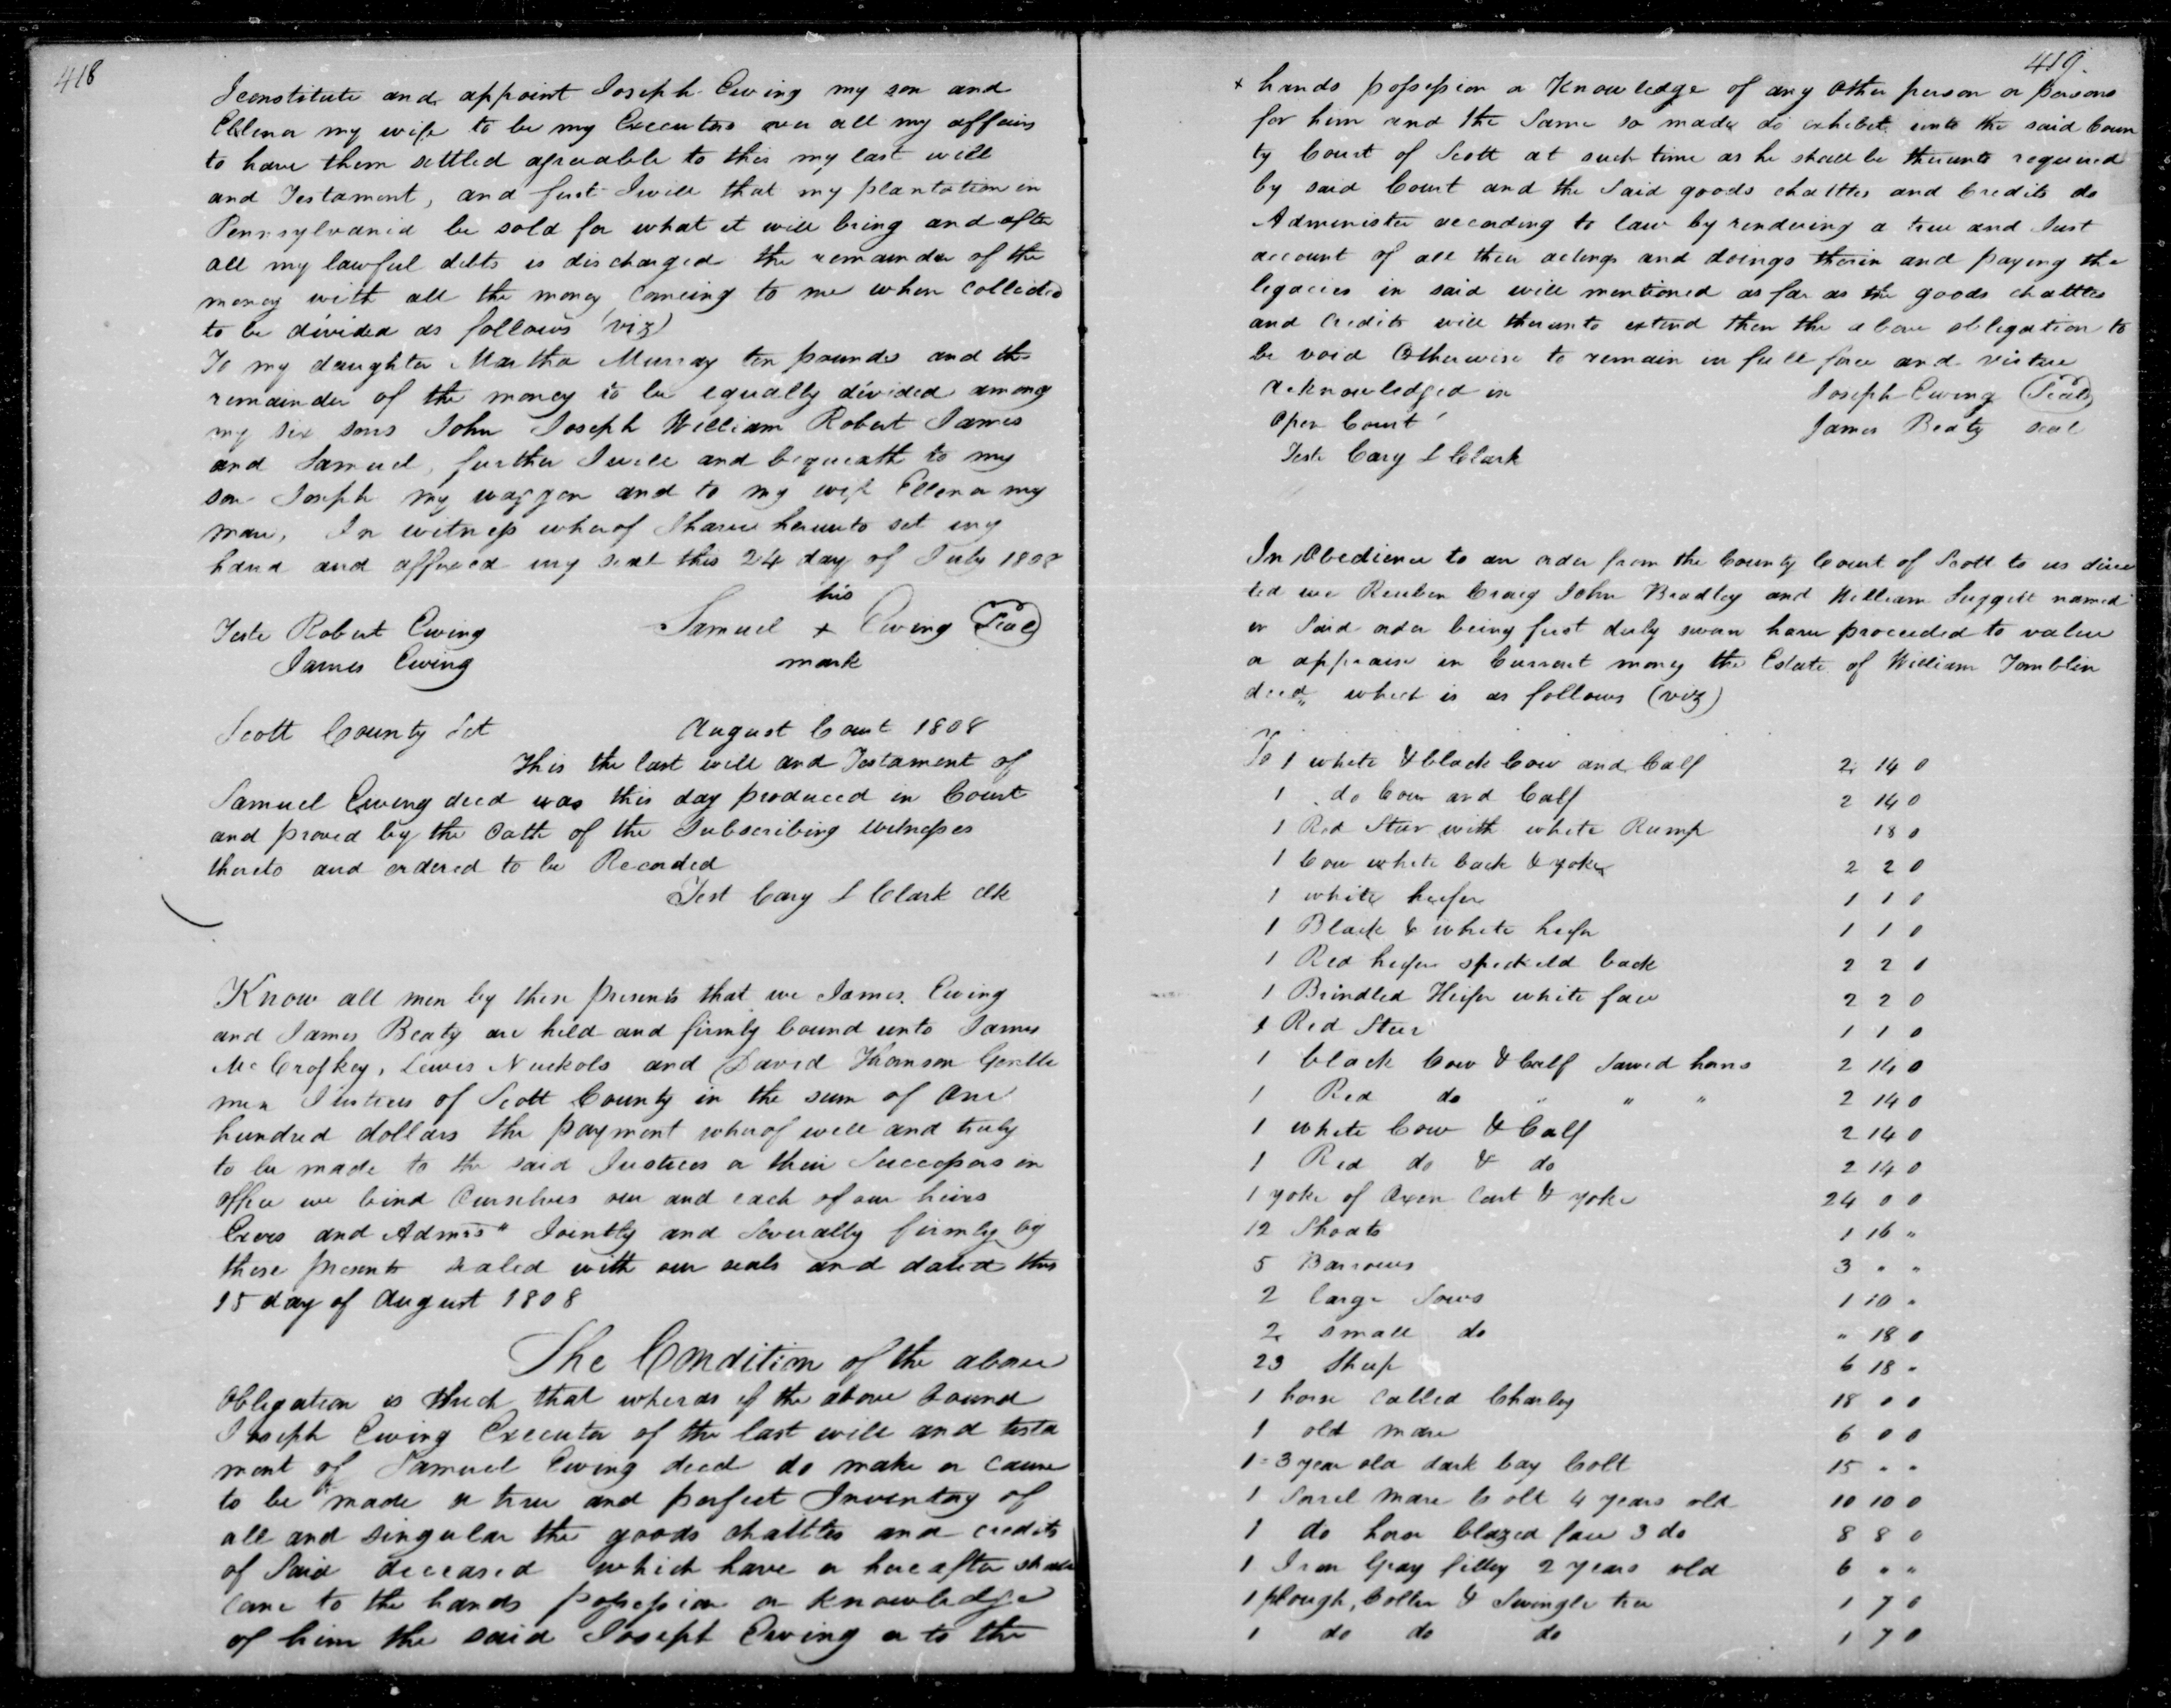 418
I constitute and appoint Joseph Ewing my son and
Ellenor my wife to be my Executors over all my affairs
to have them settled agreeable to this my last will
and Testament, and first I will that my plantation in
Pennsylvania be sold for what it will bring and after
all my lawful debts is discharged the remainder of the
money with all the money comeing to me when collected
to be divided as follows (viz)
To my daughter Martha Murray ten pounds and the
remainder of the money to be equally divided among
my six sons John Joseph William Robert James
and Samuel, further I will and bequeath to my
son Joseph my waggon and to my wife Ellenor my
mare, In witness whereof I have hereunto set my
hand and affixed my seal this 24 day of July 1808
his
Teste Robert Ewing Samuel + Ewing Seal
James Ewing mark
Scott County Sct August Court 1808
This the last will and Testament of
Samuel Ewing decd was this day produced in Court
and proved by the Oath of the Subscribing witnesses
thereto and ordered to be Recorded
Test Cary L Clark Clk
Know all men by these presents that we James Ewing
and James Beaty are held and firmly bound unto James
McCroskey, Lewis Nuckols and David Thomson Gentle
men Justices of Scott County in the sum of One
hundred dollars the payment whereof well and truly
to be made to the said Justices or their Successors in
office we bind Ourselves our and each of our heirs
Exors and Admrs" Jointly and Severally firmly by
these presents sealed with our seals and dated this
15 day of August 1808
The Condition of the above
Obligation is such that whereas if the above bound
Joseph Ewing Executor of the last will and testa
ment of Samuel Ewing decd do make or cause
to be made a true and perfect Inventory of
all and singular the goods chattles and credits
of Said deceased which have or hereafter shall
come to the hands possession or knowledge
of him the said Joseph Ewing or to the
419.
+ hands possession or Knowledge of any Other person or persons
for him and the Same so made do exhibit unto the said Coun
ty Court of Scott at such time as he shall be thereunto required
by said Court and the Said goods chattles and Credits do
Administer according to law by rendering a true and Just
account of all their actings and doings therein and paying the
legacies in said will mentioned as far as the goods chattles
and credits will thereunto extend then the above obligation to
be void Otherwise to remain in full force and virtue
Acknowledged in Joseph Ewing Seal
Open Court James Beaty seal
Teste Cary L Clark
In Obedience to an order from the County Court of Scott to us direc
ted we Reuben Craig John Bradley and William Suggett named
in Said order being first duly sworn have proceeded to value
or appraise in Current money the Estate of William Tomblin
decd" which is as follows (viz)
To 1 white & black Cow and Calf 2 14 0
1 do Cow and Calf 2 14 0
1 Red Steer with white Rump 18 0
1 Cow white back & yoke 2 2 0
1 white heifer 1 1 0
1 Black & white heifer 1 1 0
1 Red heifer speckeld back 2 2 0
1 Brindled Heifer white face 2 2 0
1 Red Steer 1 1 0
1 black Cow & Calf Sawed horns 2 14 0
1 Red do " " " 2 14 0
1 white Cow & Calf 2 14 0
1 Red do & do 2 14 0
1 yoke of Oxen Cart & yoke 24 0 0
12 Shoats 1 16 "
5 Barrows 3 " "
2 large Sows 1 10 "
2 small do " 18 0
23 Sheep 6 18 "
1 horse called Charley 18 0 0
1 old mare 6 0 0
1 = 3 year old dark bay Colt 15 " "
1 Sorrel mare Colt 4 years old 10 10 0
1 do horse blazed face 3 do 8 8 0
1 Iron Gray filley 2 years old 6 " "
1 plough, Colter & Swingle tree 1 7 0
1 do do do 1 7 0